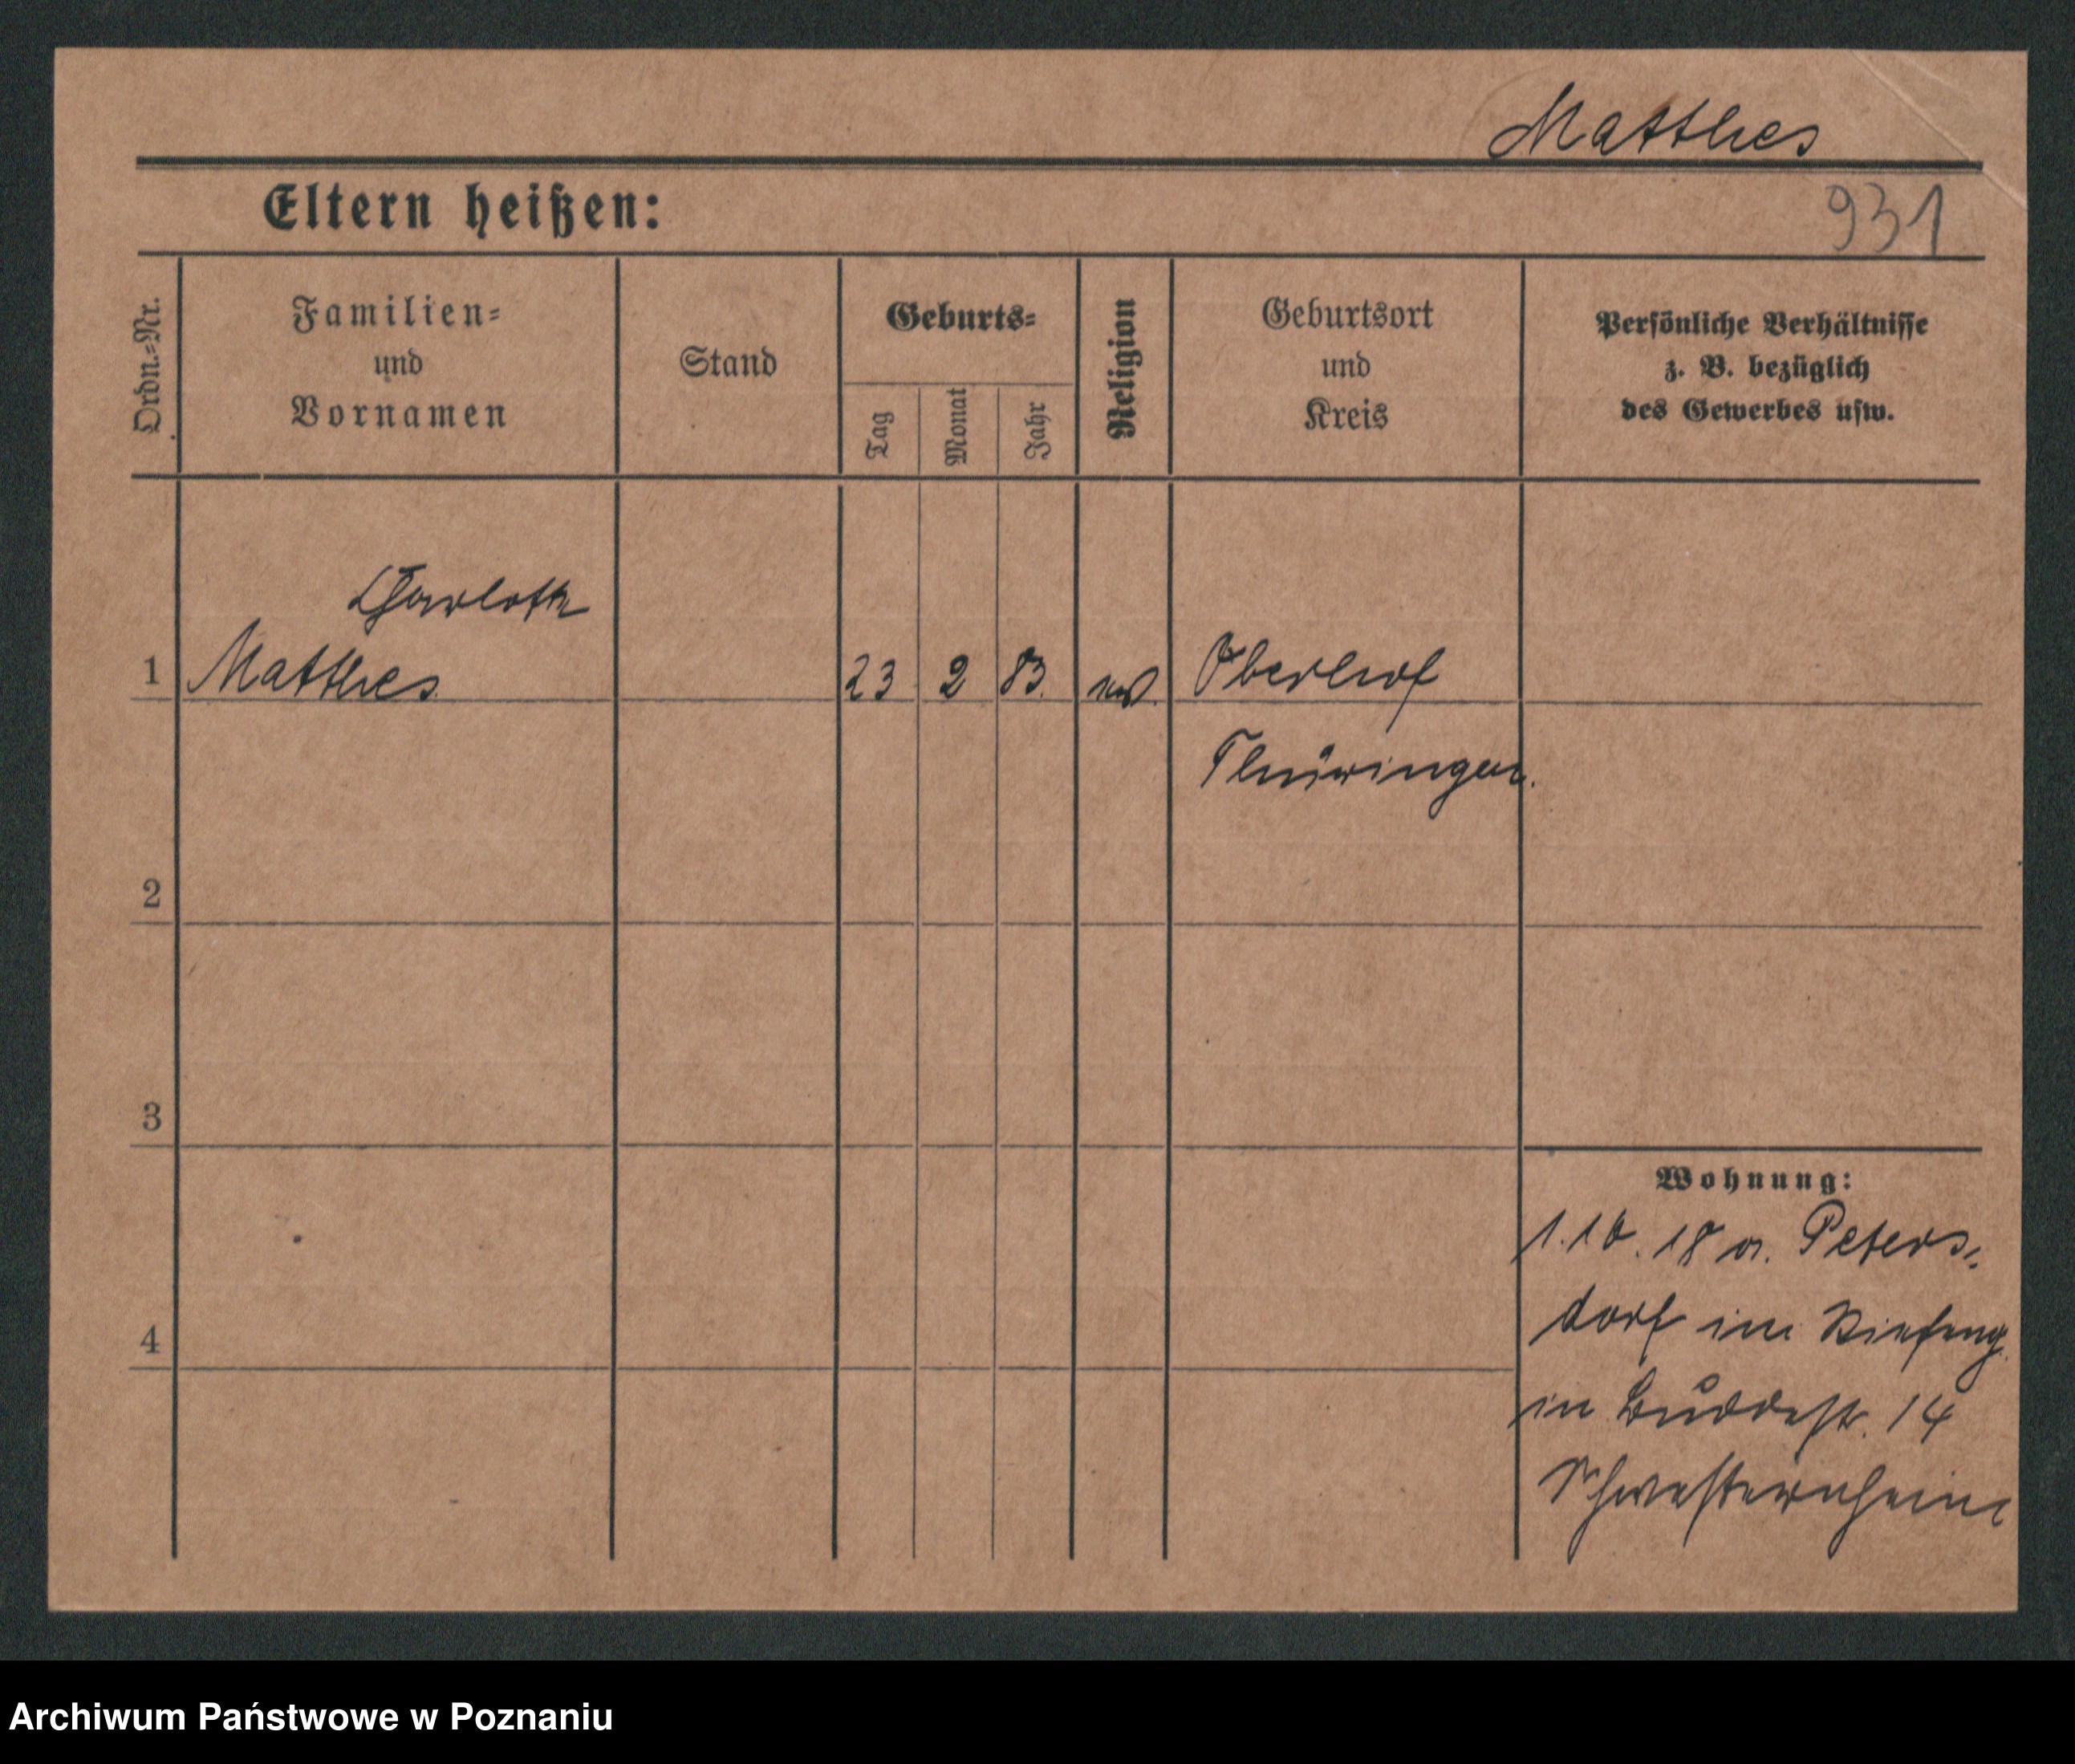 Matthes
Eltern heißen:
931
Ordn.-Nr.
Familien-
und
Vornamen
Stand
Geburts-
Tag
Monat
Jahr
Religion
Geburtsort
und
Kreis
Persönliche Verhältnisse
z. B. bezüglich
des Gewerbes usw.
Charlotte
1 Matthes 23 2 83. Oberhof
Thüringen.
2
3
4
Wohnung:
1.10.18 a. Peters-
dorf im
in 14
Schwesternheim
Archiwum Państwowe w Poznaniu